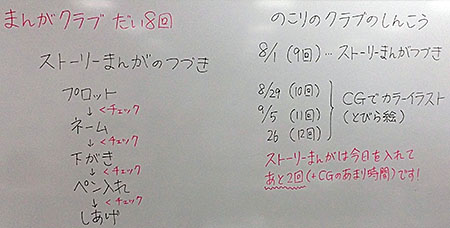 まんがクラブ だい8回
ストーリーまんがのつづき
プロット
↓<チェック
ネーム
↓<チェック
下がき
↓<チェック
ペン入れ
↓<チェック
しあげ
のこりのクラブのしんこう
8/1 (9回)…ストーリーまんがつづき
8/29 (10回)
9/5 (11回)
26 (12回)
CGでカラーイラスト
(とびら絵)
ストーリーまんがは今日を入れて
あと2回(+CGのあまり時間)です!